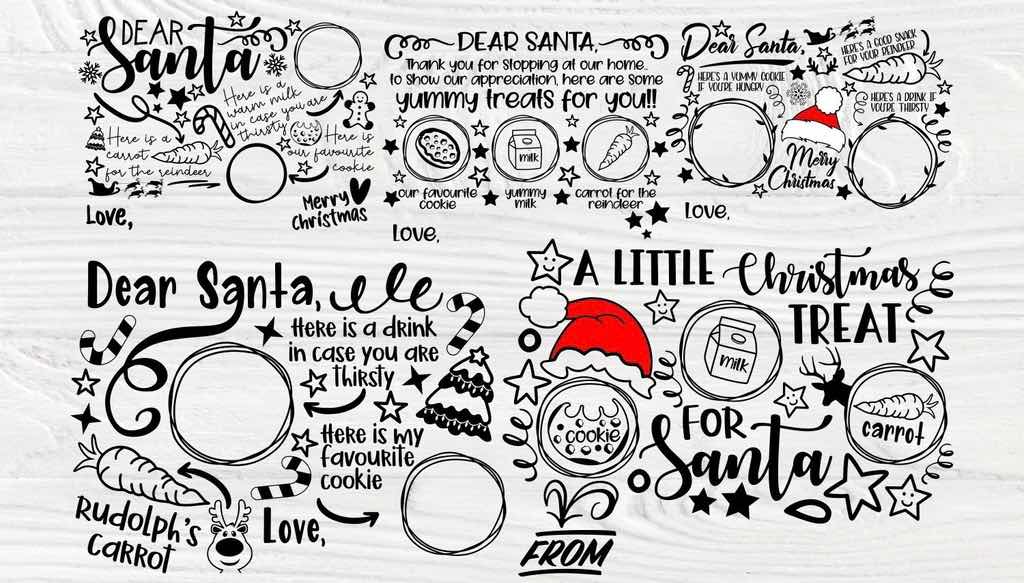 DEAR
Santa
Here is a
warm milk
in case you are
thirsty
Here is a
carrot
for the reindeer
Here is
our favourite
cookie
Merry
Christmas
Love,
DEAR SANTA,
Thank you for stopping at our home..
to show our appreciation, here are some
yummy treats for you!!
milk
our favourite
cookie
yummy
milk
carrot for the
reindeer
Love,
Dear Santa,
HERE'S A GOOD SNACK
FOR YOUR REINDEER
HERE'S A YUMMY COOKIE
IF YOU'RE HUNGRY
HERE'S A DRINK IF
YOU'RE THIRSTY
Merry
Christmas
Love,
Dear Santa,
Here is a drink
in case you are
thirsty
Here is my
favourite
cookie
Rudolph's
carrot
Love,
A LITTLE Christmas
TREAT
milk
cookie
carrot
FOR
Santa
FROM